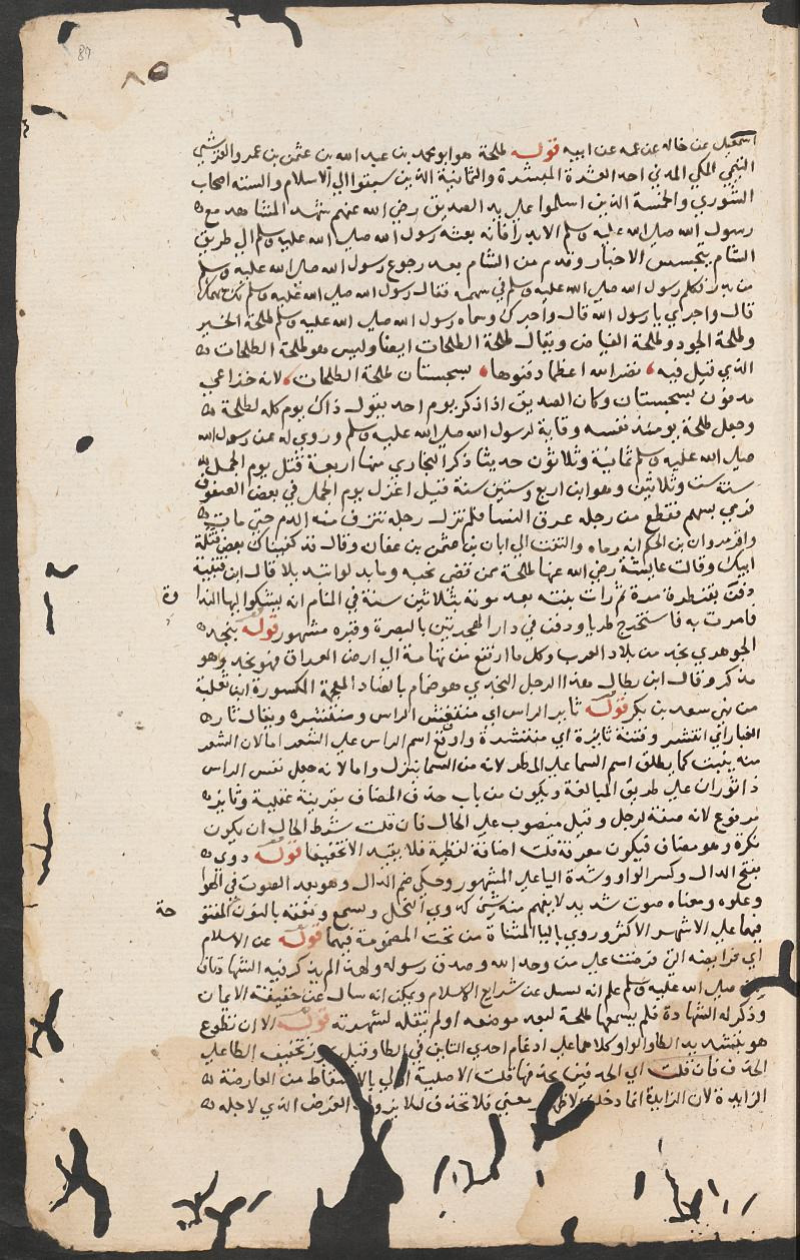 87
٨٥
اسمعيل عن خاله عن عمه عن ابيه قوله طلحة هو ابو محمد بن عبد الله بن عثمن بن عمرو القرشي
التيمي المكي المدني احد العشرة المبشرة والثمانية الذين سبقوا الي الاسلام والستة اصحاب
الشوري والخمسة الذين اسلموا علي يد الصديق رضي الله عنهم شهد المشاهد مع
رسول الله صلي الله عليه وسلم الا بدرا فانه بعثه رسول الله صلي الله عليه وسلم الي طريق
الشام يتجسس الاخبار وقدم من الشام بعد رجوع رسول الله صلي الله عليه وسلم
من بدر فكلم رسول الله صلي الله عليه وسلم في سهمه فقال رسول الله صلي الله عليه وسلم لك سهمك
قال واجري يا رسول الله قال واجرك وسماه رسول الله صلي الله عليه وسلم طلحة الخير
وطلحة الجود وطلحة الفياض ويقال طلحة الطلحات ايضا وليس هو طلحة الطلحات
الذي قيل فيه نضر الله اعظما دفنوها بسجستان طلحة الطلحات لانه خزاعي
مدفون بسجستان وكان الصديق اذا ذكر يوم احد يقول ذاك يوم كله لطلحة
وجعل طلحة يومئذ نفسه وقاية لرسول الله صلي الله عليه وسلم وروي له عن رسول الله
صلي الله عليه وسلم ثمانية وثلاثون حديثا ذكر البخاري منها اربعة قتل يوم الجمل
سنة ست وثلاثين وهو ابن اربع وستين سنة قيل اعتزل يوم الجمل في بعض الصفوف
فرمي بسهم فقطع من رجله عرق النسا فلم تزل رجله تنزف منه الدم حتي مات
واقر مروان بن الحكم انه رماه والتفت الي ابان بن عثمن بن عفان وقال قد كفيناك بعض قتلة
ابيك وقالت عايشة رضي الله عنها طلحة ممن قضي نحبه وما بدلوا تبديلا قال ابن قتيبة
دفن بقنطرة مرة ثم رات بنته بعد موته بثلاثين سنة في المنام انه يشكو اليها الندا
وة
فامرت به فاستخرج طريا ودفن في دار الهجرتين بالبصرة وقبره مشهور قوله بنجد
الجوهري نجد من بلاد العرب وكل ما ارتفع من تهامة الي ارض العراق فهو نجد وهو
مذكر وقال ابن بطال هذا الرجل النجدي هو ضمام بالضاد المعجمة المكسورة ابن ثعلبة
من بني سعد بن بكر قوله ثاير الراس اي منتفش الراس ومنتشره ويقال ثار
الغبار اي انتشر وفتنة ثايرة اي منتشرة واوقع اسم الراس علي الشعر اما لان الشعر
منه ينبت كما يطلق اسم السما علي المطر لانه من السما ينزل واما لانه جعل نفس الراس
ذا ثوران علي طريق المبالغة ويكون من باب حذف المضاف بقرينة عقلية وثاير
مرفوع لانه صفة لرجل وقيل منصوب علي الحال فان قلت شرط الحال ان يكون
نكرة وهو مضاف فيكون معرفة قلت اضافة لفظية فلا يفيد الا تخفيفا قوله دوي
بفتح الدال وكسر الواو وشدة اليا علي المشهور وحكي ضم الدال وهو بعد الصوت في الهوا
وعلوه ومعناه صوت شديد لا يفهم منه شي كدوي النحل ونسمع ونفقه بالنون المفتو
حة
فيهما علي الاشهر الاكثر وروي باليا المثناة من تحت المضمومة فيهما قوله عن الاسلام
اي فرايضه التي فرضت علي من وحد الله وصدق رسوله ولهذا لم يذكر فيه الشهادتان
صلي الله عليه وسلم علم انه يسال عن شرايع الاسلام ويمكن انه سال عن حقيقة الايمان
وذكر له الشهادة فلم يسمعها طلحة لبعد موضعه او لم ينقله لشهرته قوله الا ان تطوع
هو بتشديد الطا والواو كلاهما علي ادغام احدي التاين في الطا وقيل يجوز تخفيف الطا علي
الحذف فان قلت اي الحرفين يحذفها قلت الاصلية اولي بالاسقاط من العارضة
الزايدة لان الزايدة انما دخلت لاظهار معني فلا تحذف لئلا يزول الغرض الذي لاجله